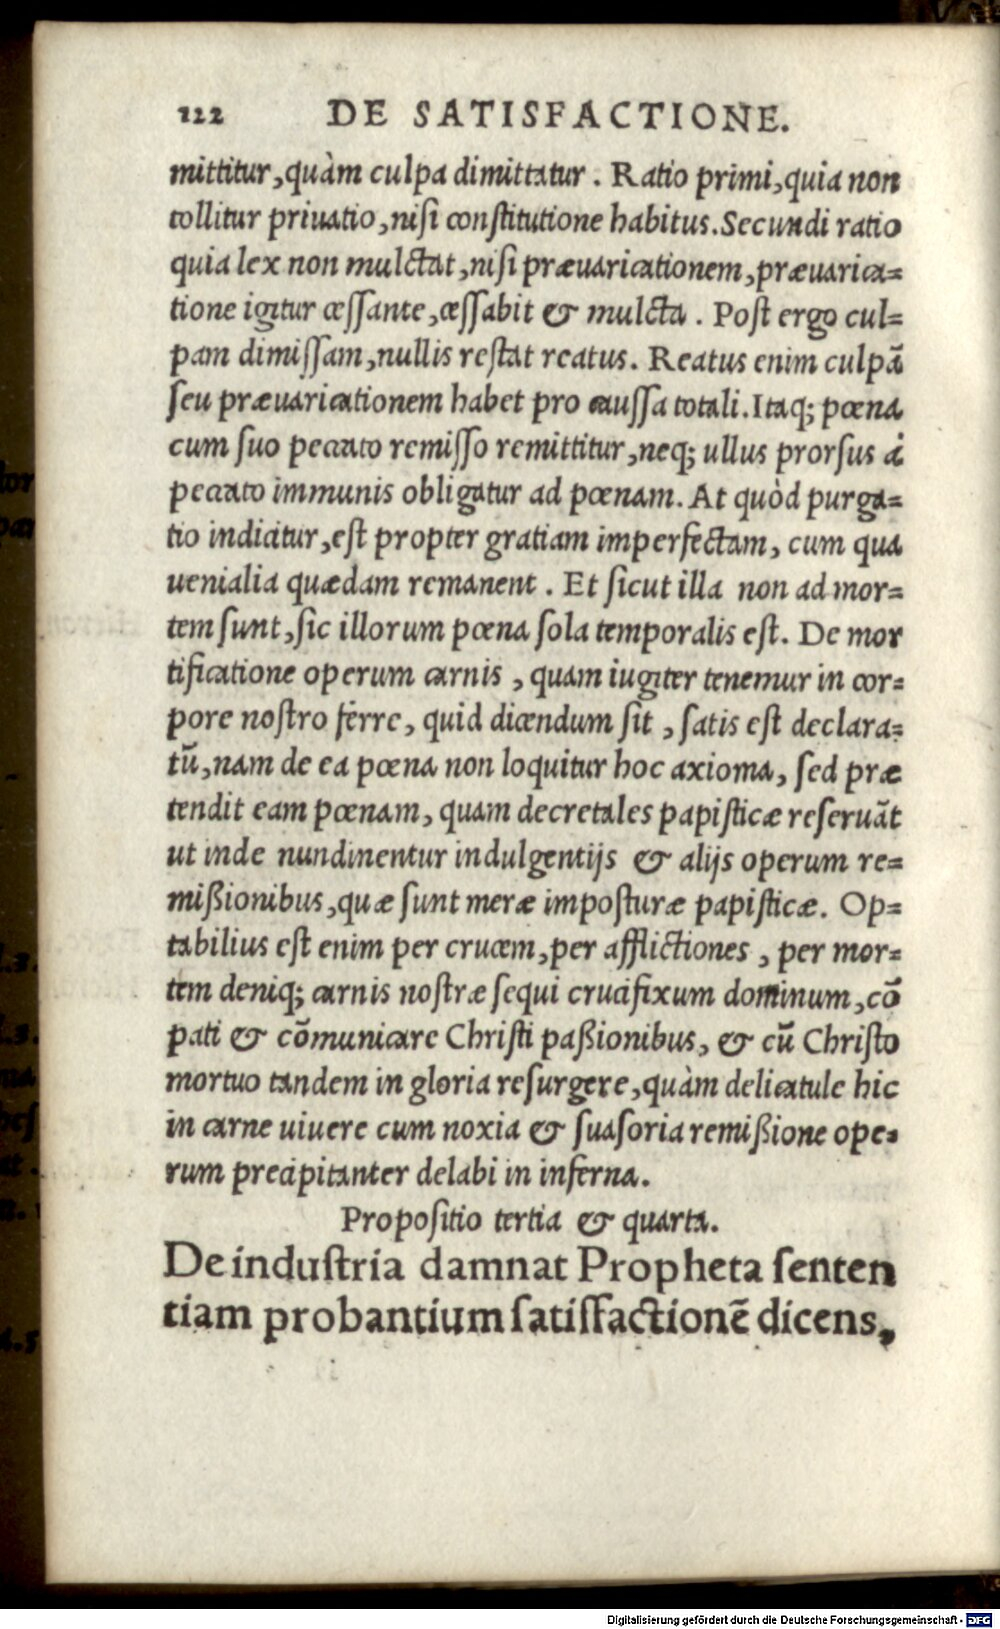 122 DE SATISFACTIONE.
mittitur, quàm culpa dimittatur. Ratio primi, quia non
tollitur priuatio, niſi conſtitutione habitus. Secundi ratio
quia lex non mulctat, niſi præuaricationem, præuarica=
tione igitur ceſſante, ceſſabit & mulcta. Poſt ergo cul=
pam dimiſſam, nullis reſtat reatus. Reatus enim culpã
ſeu præuaricationem habet pro cauſſa totali. Itaq; pœna
cum ſuo peccato remiſſo remittitur, neq; ullus prorſus à
peccato immunis obligatur ad pœnam. At quòd purga=
tio indicitur, eſt propter gratiam imperfectam, cum qua
uenialia quædam remanent. Et ſicut illa non ad mor=
tem ſunt, ſic illorum pœna ſola temporalis eſt. De mor
tificatione operum carnis, quam iugiter tenemur in cor=
pore noſtro ferre, quid dicendum ſit, ſatis eſt declara=
tũ, nam de ea pœna non loquitur hoc axioma, ſed præ
tendit eam pœnam, quam decretales papiſticæ reſeruãt
ut inde nundinentur indulgentijs & alijs operum re=
mißionibus, quæ ſunt meræ impoſturæ papiſticæ. Op=
tabilius eſt enim per crucem, per afflictiones, per mor=
tem deniq; carnis noſtræ ſequi crucifixum dominum, cõ
pati & cõmunicare Chriſti paßionibus, & cũ Chriſto
mortuo tandem in gloria reſurgere, quàm delicatule hic
in carne uiuere cum noxia & ſuaſoria remißione ope=
rum precipitanter delabi in inferna.
Propoſitio tertia & quarta.
De induſtria damnat Propheta ſenten
tiam probantium ſatiſfactionẽ dicens,
Digitalisierung gefördert durch die Deutsche Forschungsgemeinschaft - DFG